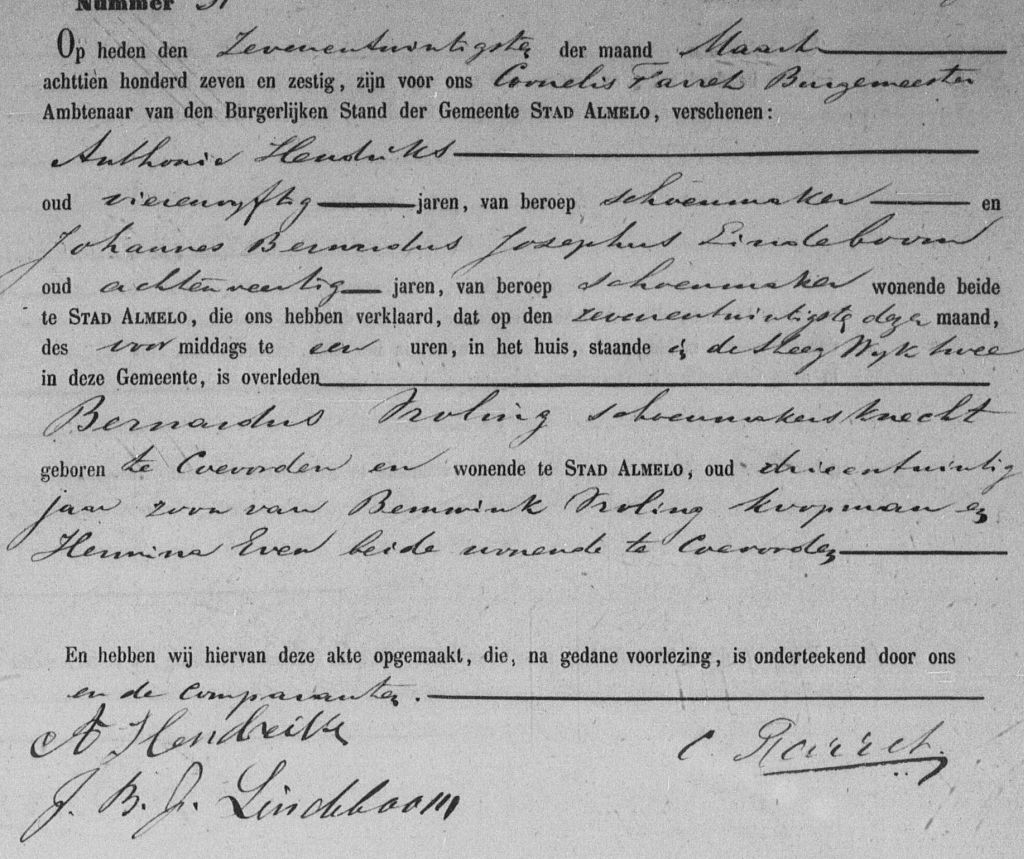 Nummer
Op heden den Zevenentwintigste der maand Maart
achttien honderd zeven en zestig, zijn voor ons Cornelis Farret Burgemeester
Ambtenaar van den Burgerlijken Stand der Gemeente STAD ALMELO, verschenen:
Anthonie Hendriks
oud vierenvyftig jaren, van beroep schoenmaker en
Johannes Bernardus Josephus Lindeboom
oud achtenveertig jaren, van beroep schoenmaker wonende beide
te STAD ALMELO, die ons hebben verklaard, dat op den zevenentwintigste dezer maand,
des voor middags te een uren, in het huis, staande in de steeg Wyk twee
in deze Gemeente, is overleden
Bernardus Vroling schoenmakersknecht
geboren te Coevorden en wonende te STAD ALMELO, oud drieentwintig
jaar zoon van Vroling koopman en
Hermina Even beide wonende te Coevorden
En hebben wij hiervan deze akte opgemaakt, die, na gedane voorlezing, is onderteekend door ons
en de comparanten.
A Hendriks
C. Farret.
J. B. J. Lindeboom